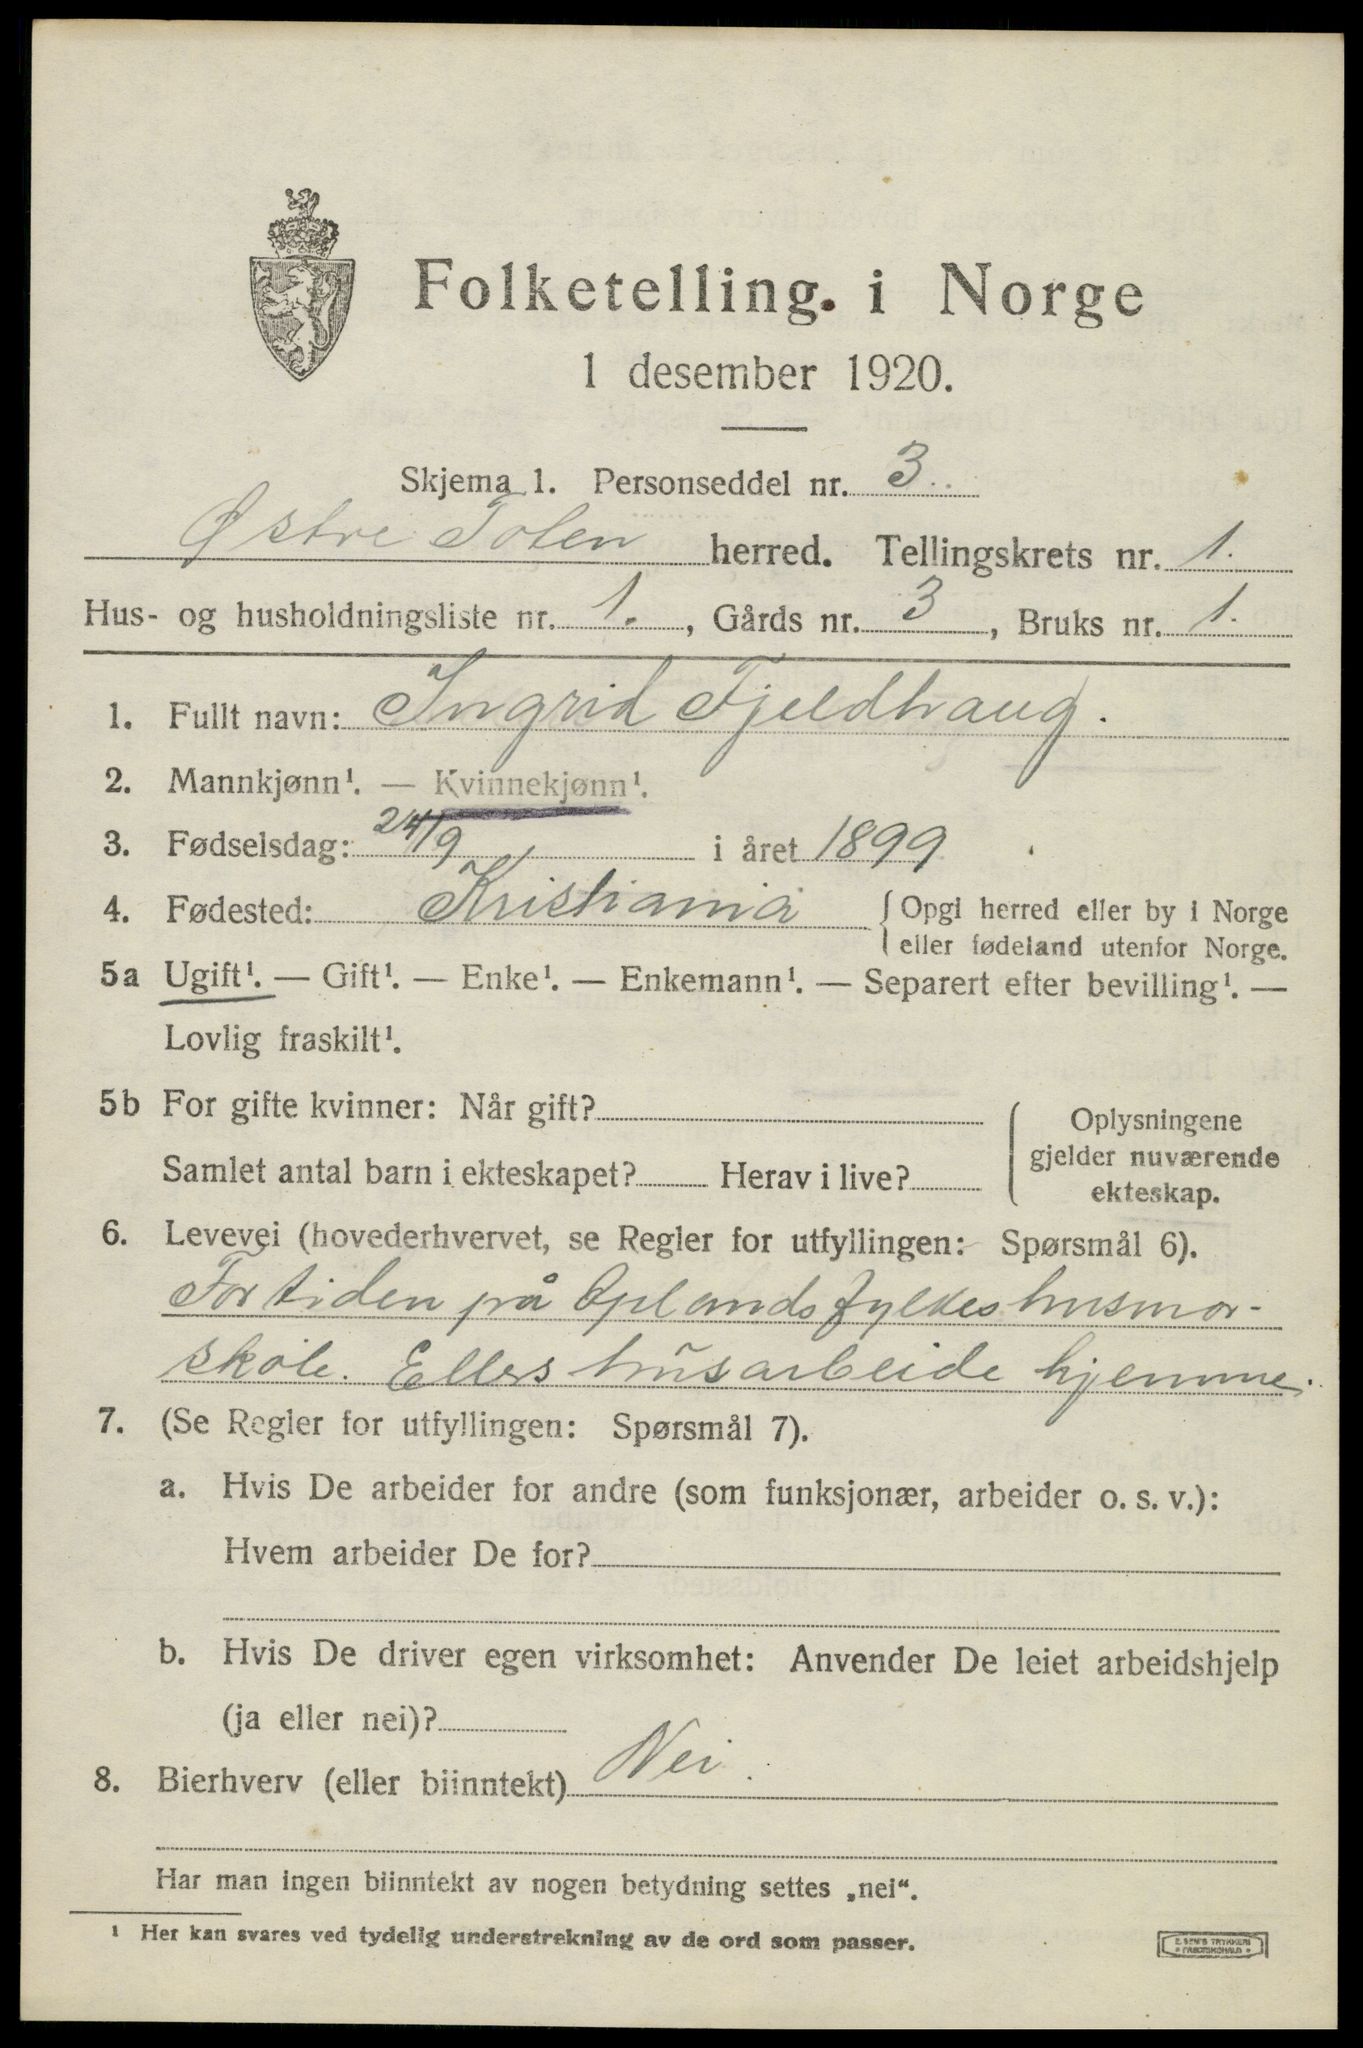 Folketelling i Norge
1 desember 1920.
Skjema 1. Personseddel nr. 3
Østre Toten herred. Tellingskrets nr. 1.
Hus- og husholdningsliste nr. 1., Gårds nr. 3, Bruks nr. 1.
1. Fullt navn: Ingrid Fjeldhaug.
2. Mannkjønn¹. — Kvinnekjønn¹.
3. Fødselsdag: 24/9 i året 1899
4. Fødested: Kristiania { Opgi herred eller by i Norge
eller fødeland utenfor Norge.
5a Ugift¹. — Gift¹. — Enke¹. — Enkemann¹. — Separert efter bevilling¹. —
Lovlig fraskilt¹.
5b For gifte kvinner: Når gift?
Samlet antal barn i ekteskapet? Herav i live?
Oplysningene
gjelder nuværende
ekteskap.
6. Levevei (hovederhvervet, se Regler for utfyllingen: Spørsmål 6).
For tiden på Oplands fylkes husmor-
skole. Ellers husarbeide hjemme.
7. (Se Regler for utfyllingen: Spørsmål 7).
a. Hvis De arbeider for andre (som funksjonær, arbeider o. s. v.):
Hvem arbeider De for?
b. Hvis De driver egen virksomhet: Anvender De leiet arbeidshjelp
(ja eller nei)?
8. Bierhverv (eller biinntekt) Nei.
Har man ingen biinntekt av nogen betydning settes „nei".
¹ Her kan svares ved tydelig understrekning av de ord som passer.